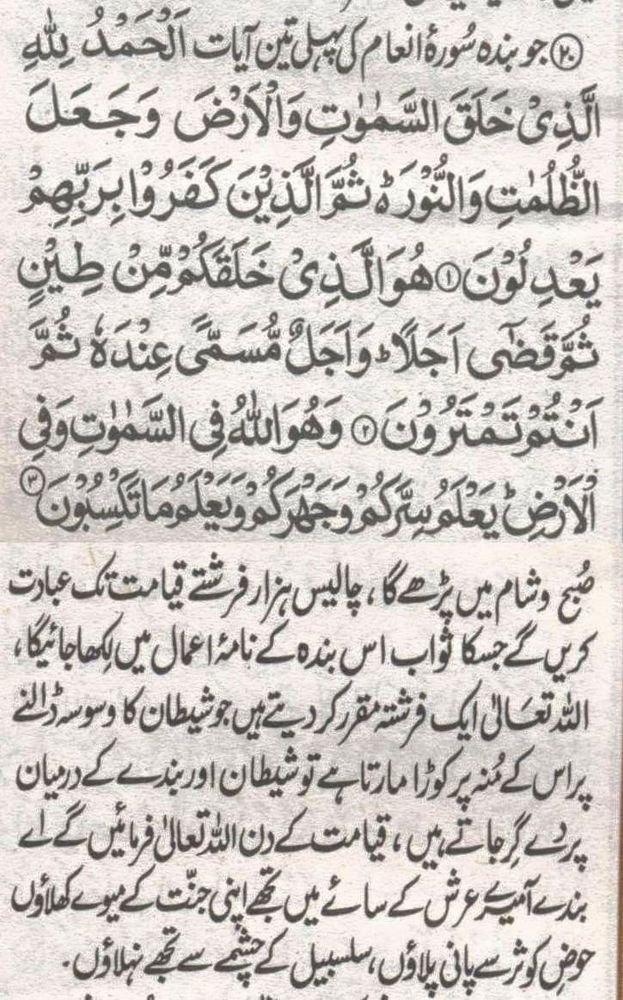 ۲۰ جو بندہ سُورۂ انعام کی پہلی تین آیات اَلْحَمْدُ لِلّٰهِ
الَّذِیْ خَلَقَ السَّمٰوٰتِ وَالْاَرْضَ وَجَعَلَ
الظُّلُمٰتِ وَالنُّوْرَ ۬ؕ ثُمَّ الَّذِیْنَ كَفَرُوْا بِرَبِّهِمْ
یَعْدِلُوْنَ ۱ هُوَ الَّذِیْ خَلَقَكُمْ مِّنْ طِیْنٍ
ثُمَّ قَضٰۤی اَجَلًا ؕ وَاَجَلٌ مُّسَمًّی عِنْدَهٗ ثُمَّ
اَنْتُمْ تَمْتَرُوْنَ ۲ وَهُوَ اللّٰهُ فِی السَّمٰوٰتِ وَفِی
الْاَرْضِ ؕ یَعْلَمُ سِرَّكُمْ وَجَهْرَكُمْ وَیَعْلَمُ مَا تَكْسِبُوْنَ ۳
صُبح وشام میں پڑھے گا ، چالیس ہزار فرشتے قیامت تک عبادت
کریں گے جسکا ثواب اس بندہ کے نامۂ اعمال میں لکھا جائیگا ،
اللہ تعَالیٰ ایک فرشتہ مقرر کر دیتے ہیں جو شیطان کا وسوسہ ڈالنے
پر اس کے مُنہ پر کوڑا مارتا ہے تو شیطان اور بندے کے درمیان
پردے گِر جاتے ہیں ، قیامت کے دن اللہ تعالیٰ فرمائیں گے اے
بندے آمیرے عرش کے سائے میں تجھے اپنی جنّت کے میوے کھلاؤں
حوضِ کوثر سے پانی پلاؤں، سلسبیل کے چشمے سے تجھے نہلاؤں۔